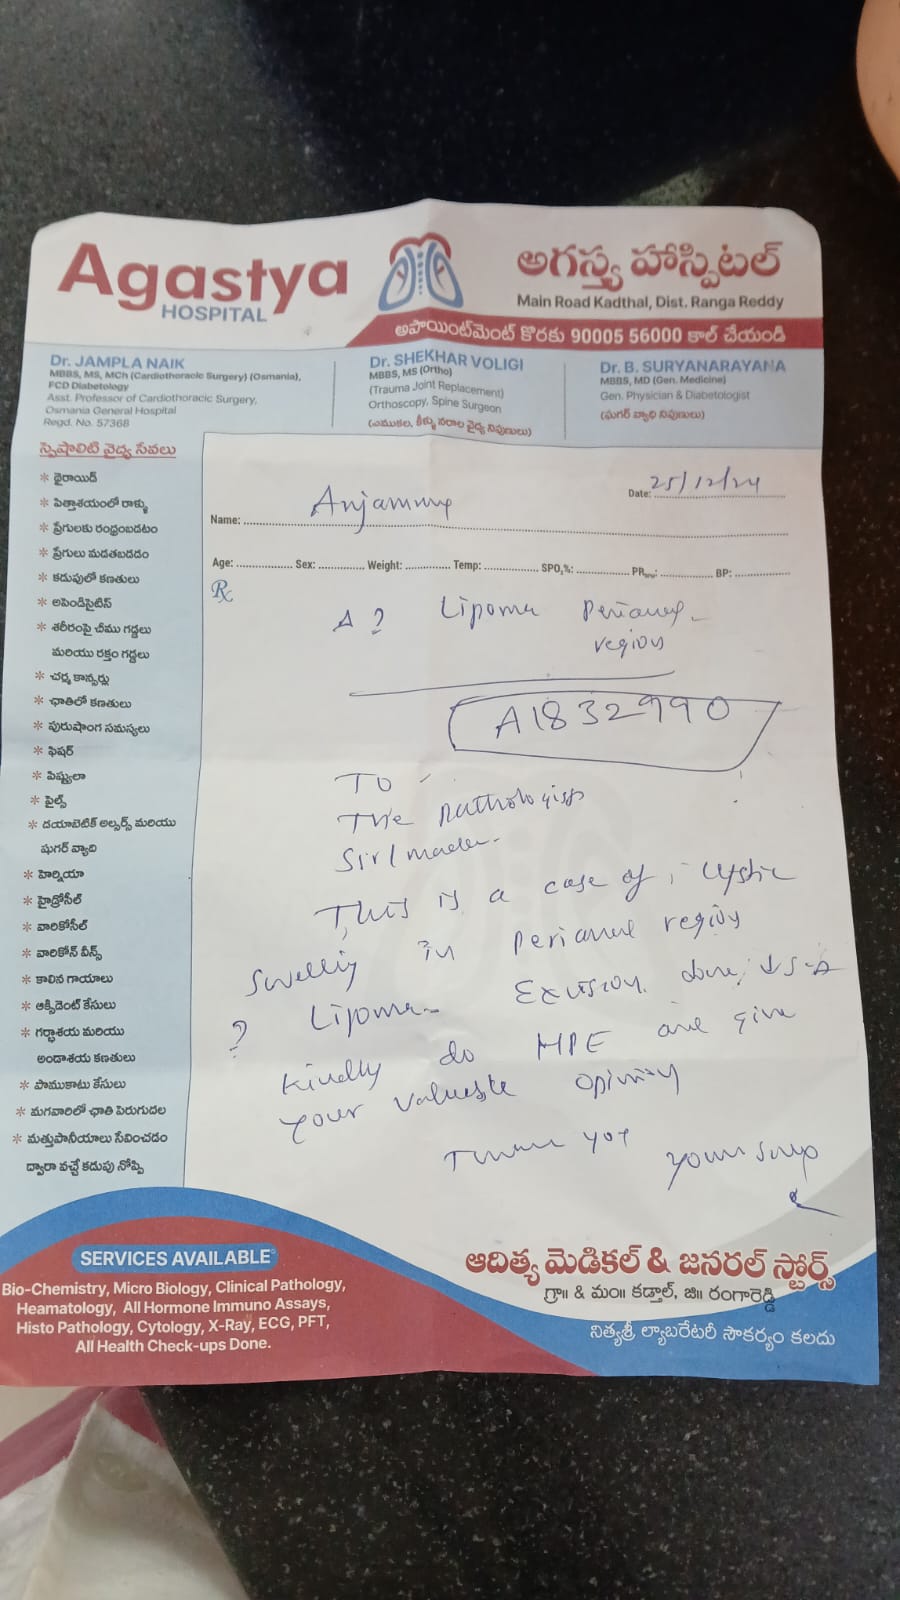 Agastya
HOSPITAL
అగస్త్య హాస్పిటల్
Main Road Kadthal, Dist. Ranga Reddy
అపాయింట్‌మెంట్ కొరకు 90005 56000 కాల్ చేయండి
Dr. JAMPLA NAIK
MBBS, MS, MCh (Cardiothoracic Surgery) (Osmania),
FCD Diabetology
Asst. Professor of Cardiothoracic Surgery,
Osmania General Hospital
Regd. No. 57368
Dr. SHEKHAR VOLIGI
MBBS, MS (Ortho)
(Trauma Joint Replacement)
Orthoscopy, Spine Surgeon
(ఎముకల, కీళ్ళు నరాల వైద్య నిపుణులు)
Dr. B. SURYANARAYANA
MBBS, MD (Gen. Medicine)
Gen. Physician & Diabetologist
(షుగర్ వ్యాధి నిపుణులు)
స్పెషాలిటి వైద్య సేవలు
* థైరాయిడ్
* పిత్తాశయంలో రాళ్ళు
* ప్రేగులకు రంధ్రంబడటం
* ప్రేగులు మడతబడడం
* కడుపులో కణతులు
* అపెండిసైటిస్
* శరీరంపై చీము గడ్డలు
మరియు రక్తం గడ్డలు
* చర్మ కాన్సర్లు
* ఛాతిలో కణతులు
* పురుషాంగ సమస్యలు
* ఫిషర్
* పిష్ట్యులా
* పైల్స్
* డయాబెటిక్ అల్సర్స్ మరియు
షుగర్ వ్యాధి
* హెర్నియా
* హైడ్రోసీల్
* వారికోసీల్
* వారికోస్ వీన్స్
* కాలిన గాయాలు
* ఆక్సిడెంట్ కేసులు
* గర్భాశయ మరియు
అండాశయ కణతులు
* పాముకాటు కేసులు
* మగవారిలో ఛాతి పెరుగుదల
* మత్తుపానీయాలు సేవించడం
ద్వారా వచ్చే కడుపు నోప్పి
Date: 25/12/24
Name: Anjamma
Age: Sex: Weight: Temp: SPO₂%: PR BP:
Rx
? Lipoma Perianal
region
A1832990
To
The Pathologist
Sir/madam
This is a case of cystic
swelling in Perianal region
? Lipoma Excision done
Kindly do HPE and give
your valuable opinion
Thank you
SERVICES AVAILABLE
Bio-Chemistry, Micro Biology, Clinical Pathology,
Heamatology, All Hormone Immuno Assays,
Histo Pathology, Cytology, X-Ray, ECG, PFT,
All Health Check-ups Done.
ఆదిత్య మెడికల్ & జనరల్ స్టోర్స్
గ్రా॥ & మం॥ కడ్తాల్, జి॥ రంగారెడ్డి
నిత్యశ్రీ ల్యాబరేటరీ సౌకర్యం కలదు